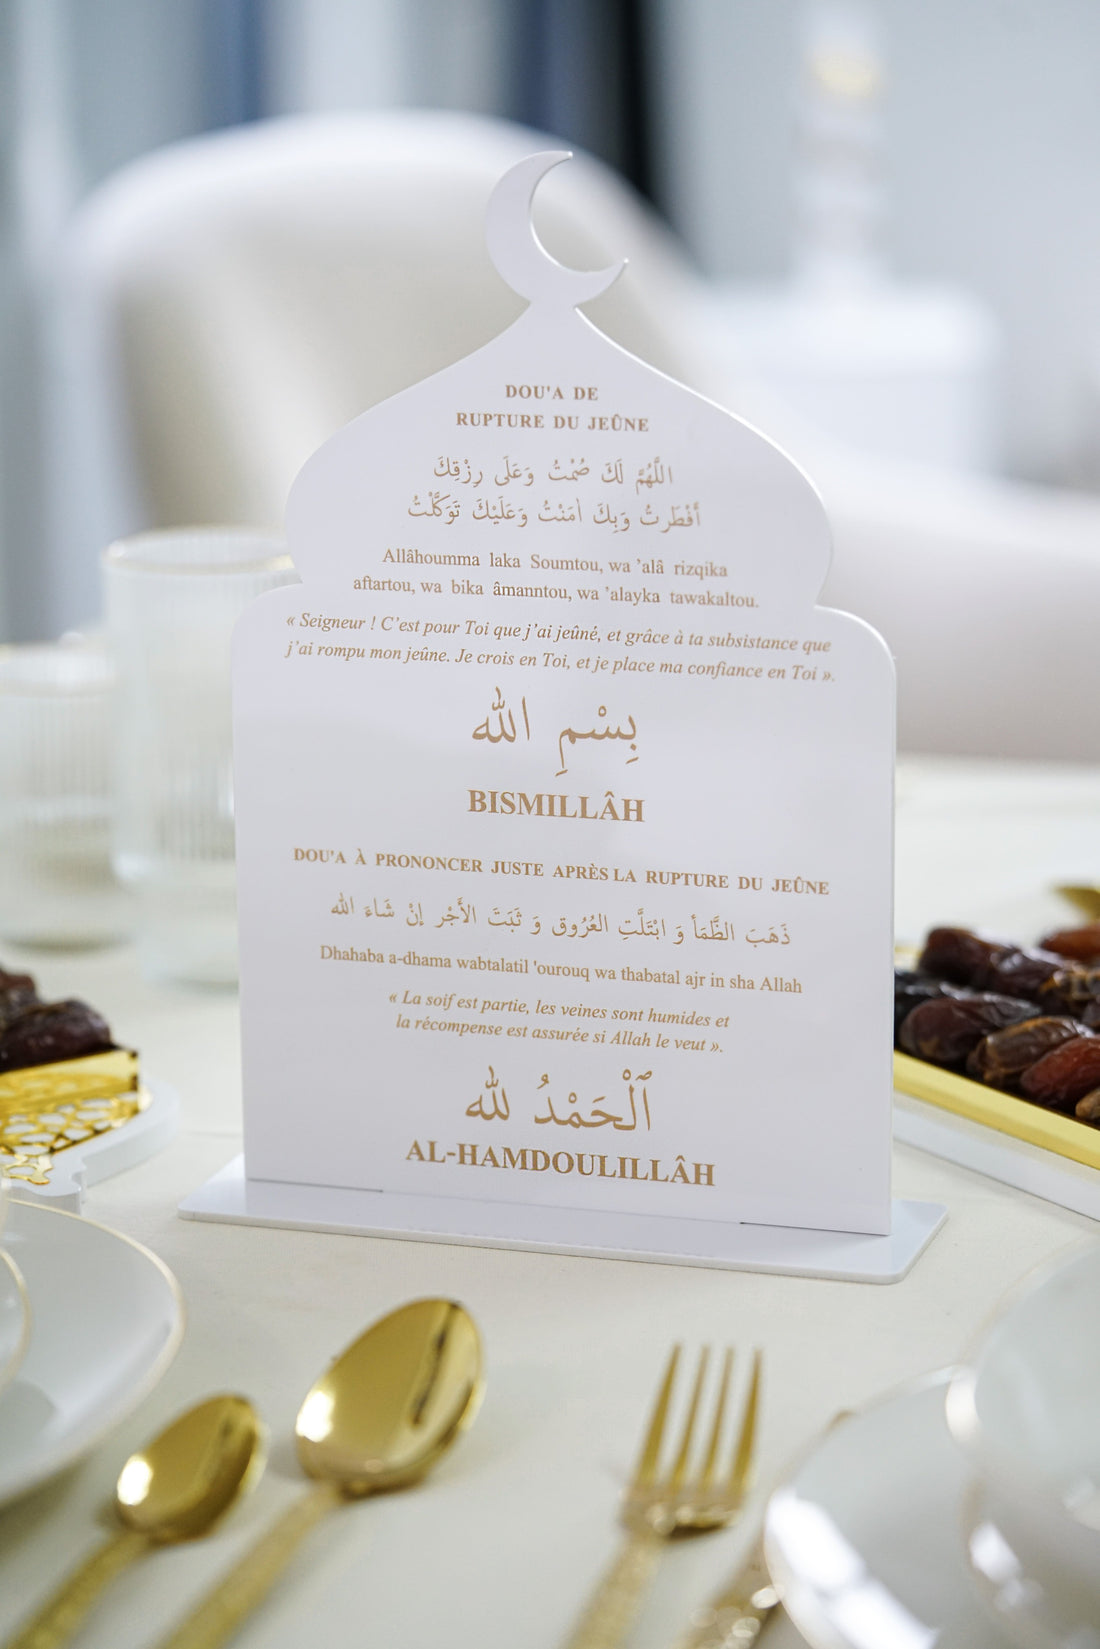 DOU'A DE
RUPTURE DU JEÛNE
اللَّهُمَّ لَكَ صُمْتُ وَعَلَى رِزْقِكَ
أَفْطَرتُ وَبِكَ اٰمَنْتُ وَعَلَيْكَ تَوَكَّلْتُ
Allâhoumma laka Soumtou, wa ’alâ rizqika
aftartou, wa bika âmanntou, wa ’alayka tawakaltou.
« Seigneur ! C’est pour Toi que j’ai jeûné, et grâce à ta subsistance que
j’ai rompu mon jeûne. Je crois en Toi, et je place ma confiance en Toi ».
بِسْمِ الله
BISMILLÂH
DOU'A À PRONONCER JUSTE APRÈS LA RUPTURE DU JEÛNE
ذَهَبَ الظَّمَأ وَ ابْتَلَّتِ العُرُوق وَ ثَبَتَ الأَجْر إِنْ شَاءَ الله
Dhahaba a-dhama wabtalatil 'ourouq wa thabatal ajr in sha Allah
« La soif est partie, les veines sont humides et
la récompense est assurée si Allah le veut ».
ٱلْحَمْدُ لله
AL-HAMDOULILLÂH